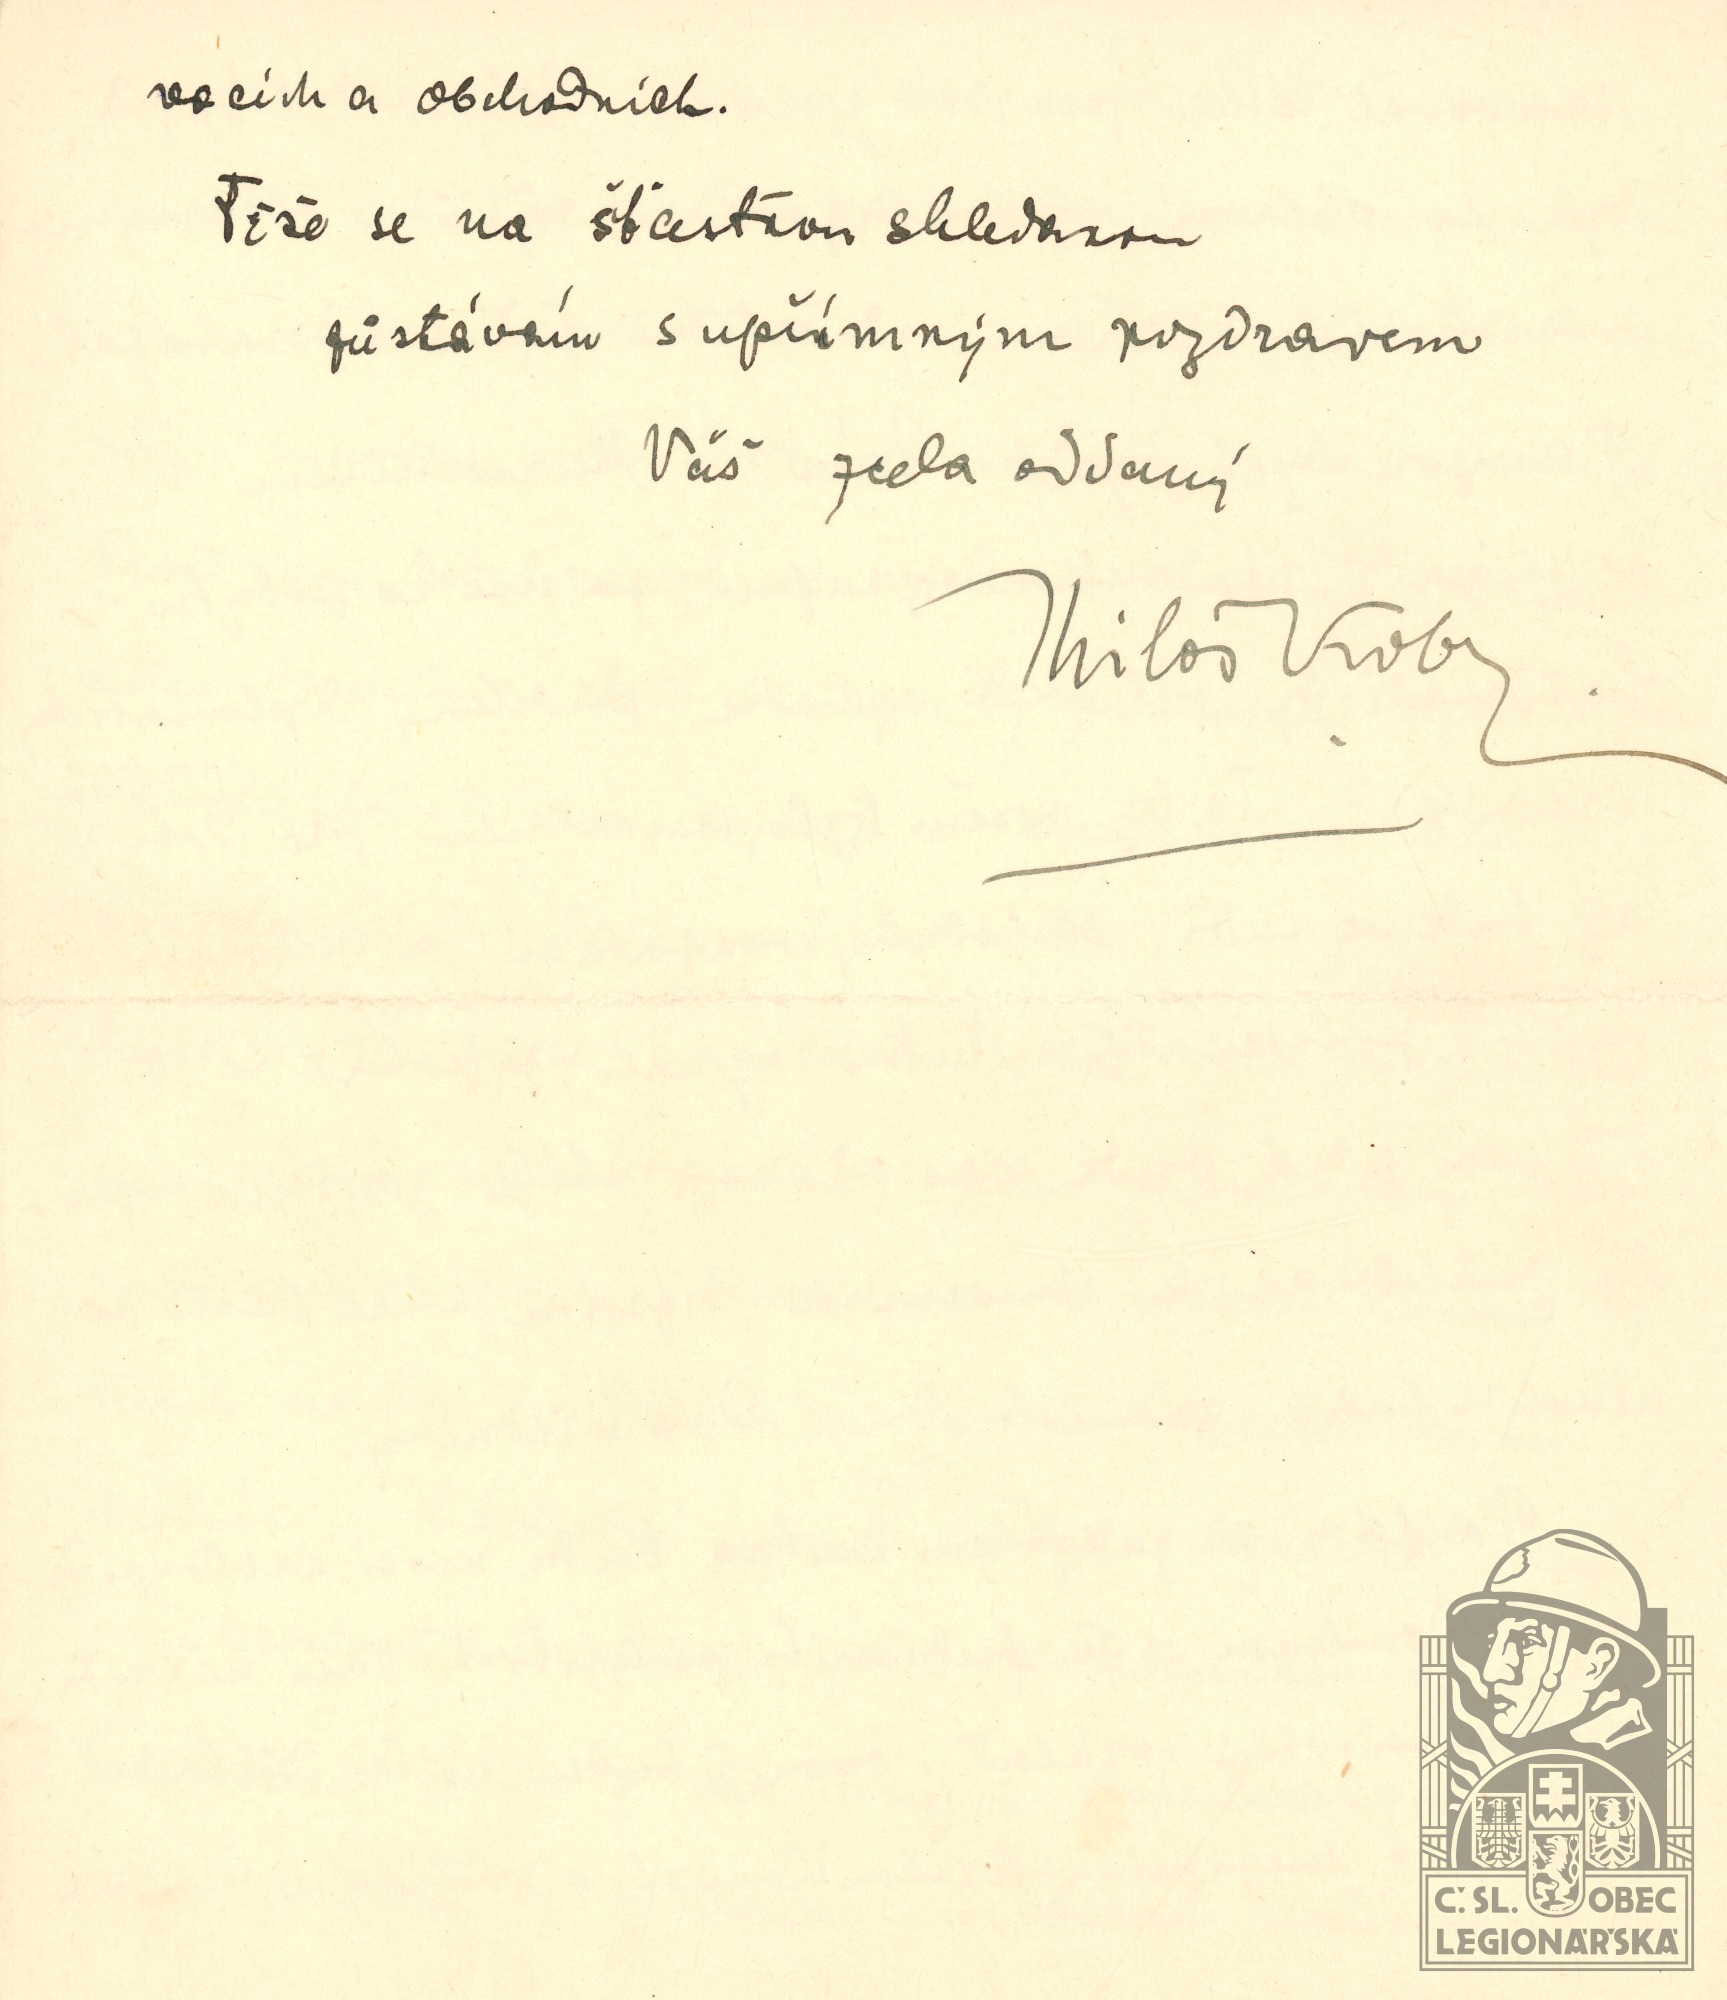 vacích a obchodních.
Těše se na šťastnou shledanou
zůstávám s upřímným pozdravem
Váš zcela oddaný
Miloš Koby
Č. SL. OBEC
LEGIONÁŘSKÁ